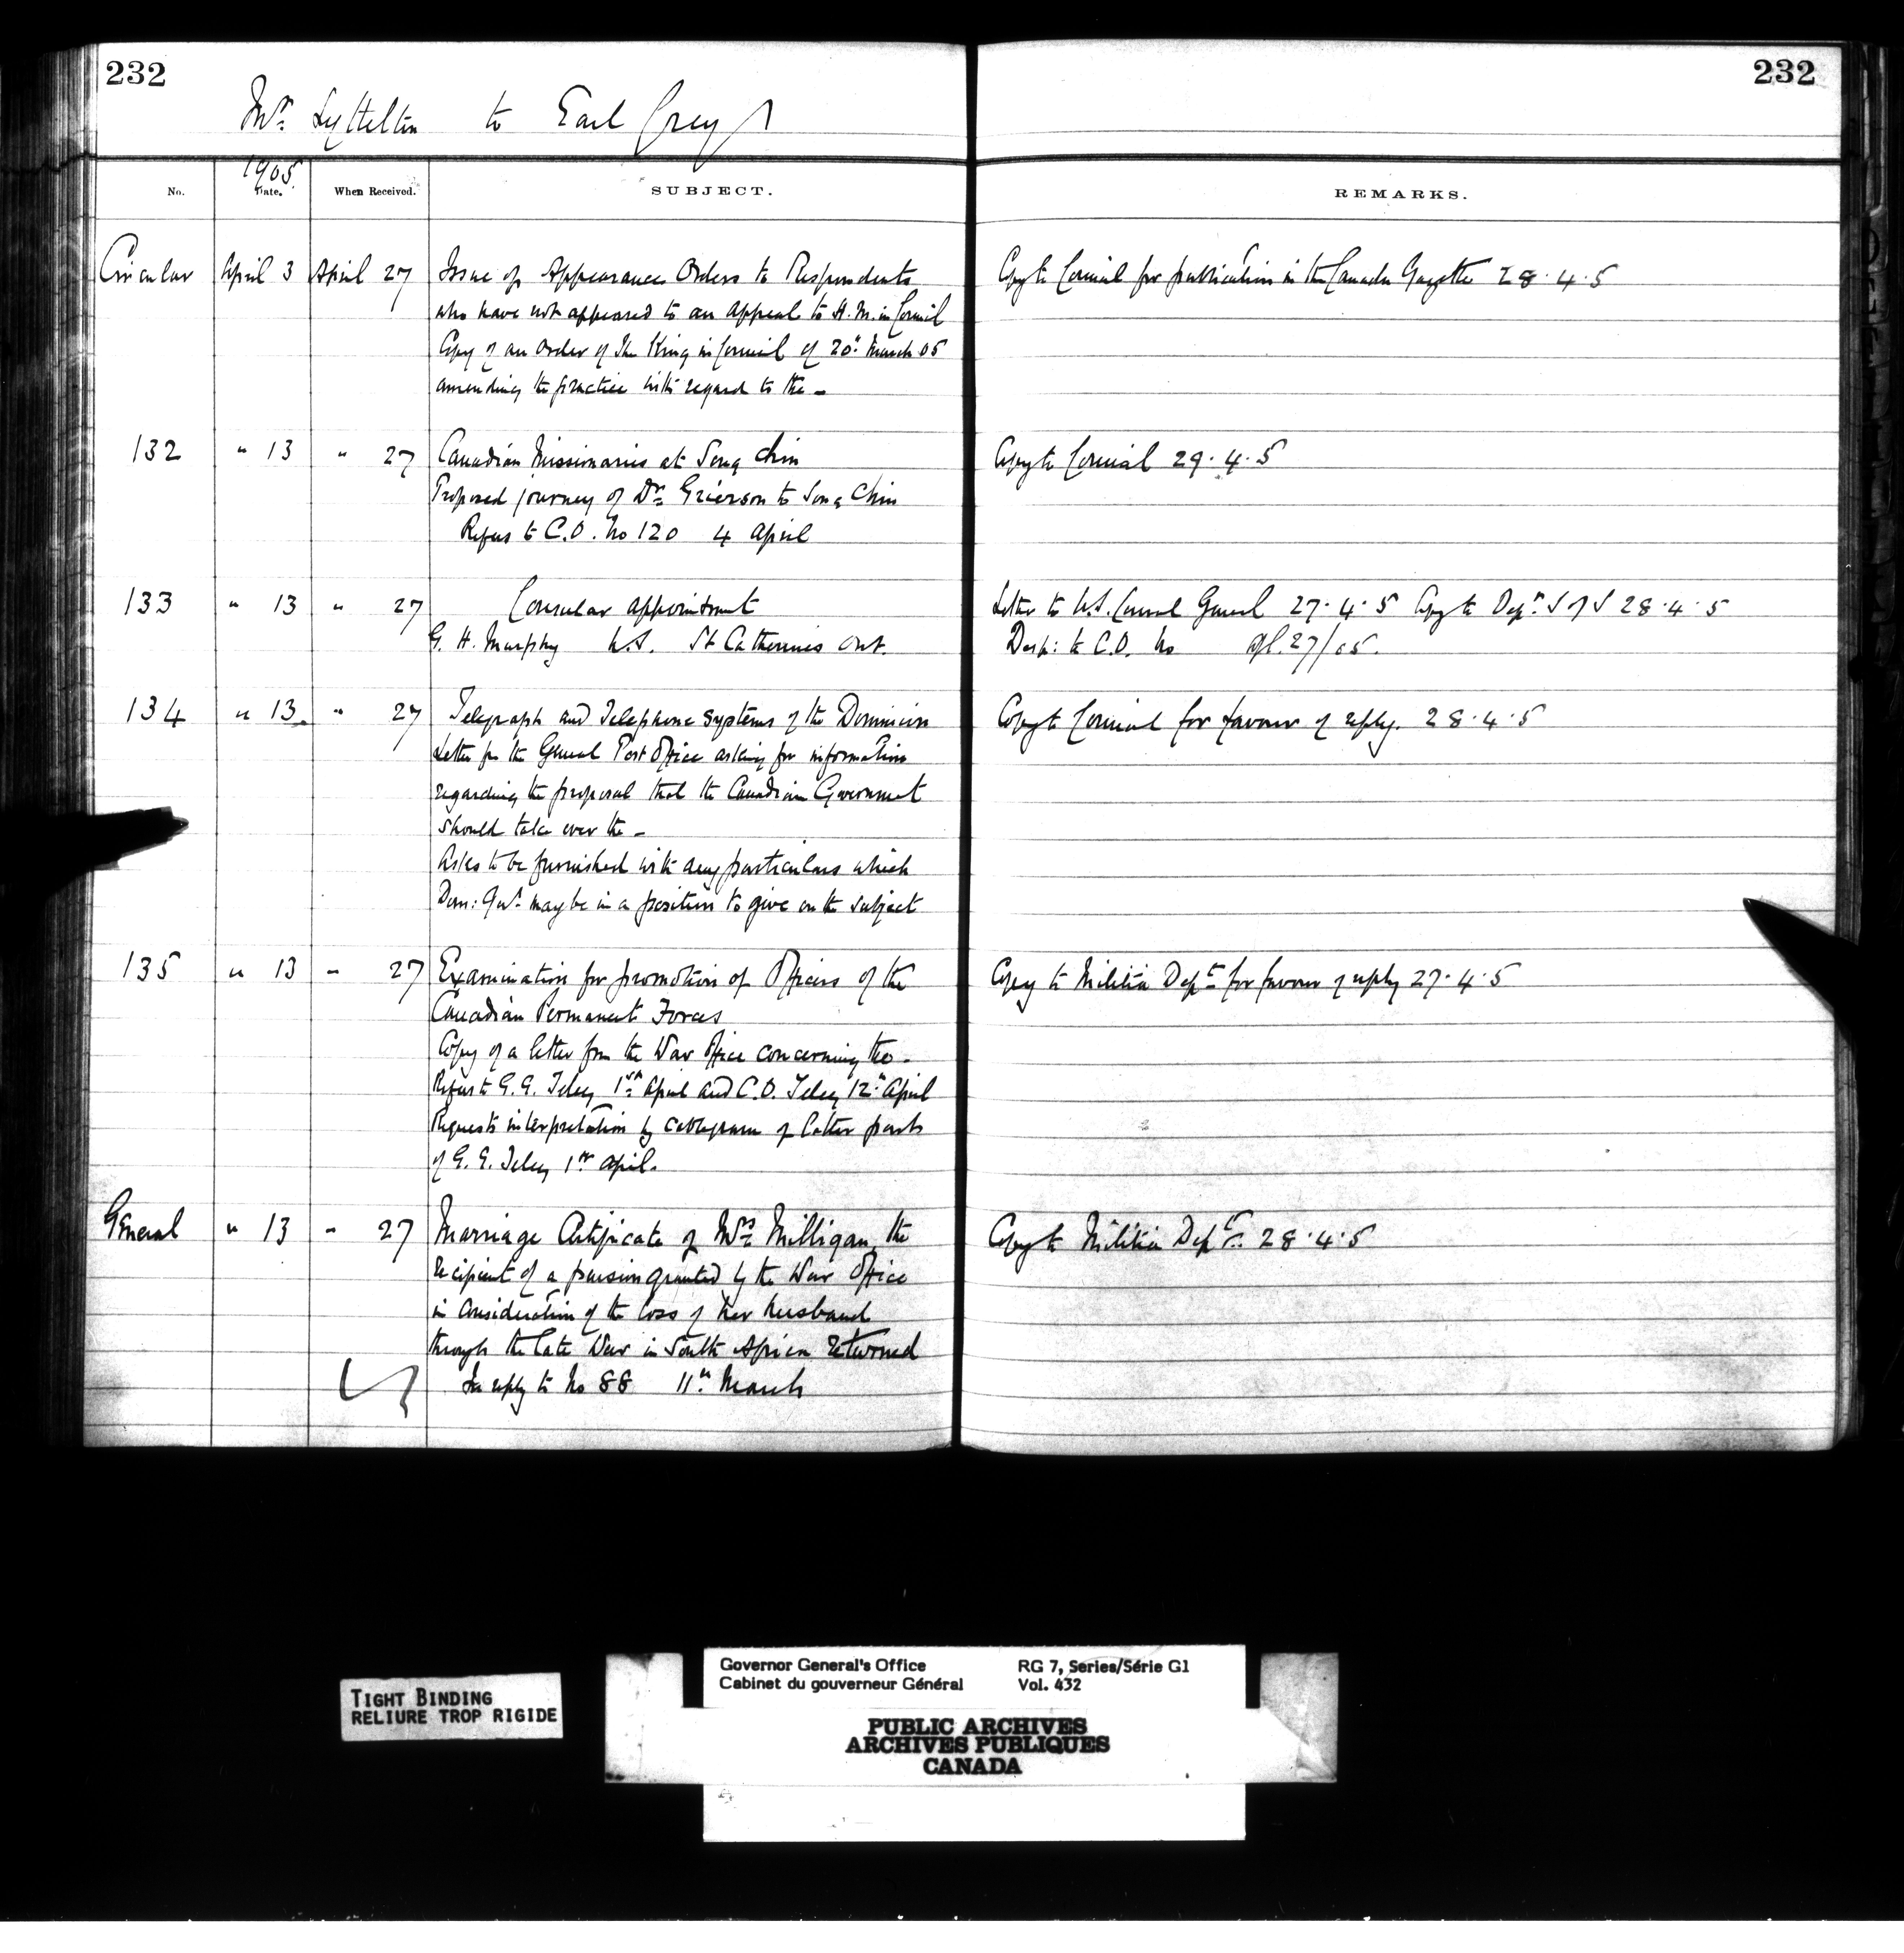 232
232
Mr. Lyttelton to Earl Grey
1905
No.
Date.
When Received.
SUBJECT.
REMARKS.
Circular April 3 April 27 Issue of Appearance Orders to Respondents
who have not appeared to an Appeal to H.M. in Council
Copy of an Order of The King in Council of 20th March 05
amending the practice with regard to the -
Copy to Council for publication in the Canada Gazette 28.4.5
132 " 13 " 27 Canadian Missionaries at Song Chin
Proposed journey of Dr. Grierson to Song Chin
Refers to C.O. No 120 4 April
Copy to Council 29.4.5
133 " 13 " 27 Consular appointment
G. H. Murphy U.S. St Catherines Ont.
Letter to U.S. Consul General 27.4.5 Copy to Dept. S of S 28.4.5
Desp: to C.O. No Apl. 27/05.
134 " 13. " 27 Telegraph and Telephone systems of the Dominion
Letter fm the General Post Office asking for information
regarding the proposal that the Canadian Government
should take over the -
Asks to be furnished with any particulars which
Dom: Govt. may be in a position to give on the subject
Copy to Council for favour of reply. 28.4.5
135 " 13 " 27 Examination for promotion of Officers of the
Canadian Permanent Forces
Copy of a letter from the War Office concerning the -
Refers to G.G. Teleg 1st April and C.O. Teleg 12th April
Requests interpretation by cablegram of latter parts
of G.G. Teleg 1st April.
Copy to Militia Dept for favour of reply 27.4.5
General " 13 " 27 Marriage Certificate of Mrs. Milligan, the
recipient of a pension granted by the War Office
in consideration of the loss of her husband
through the late War in South Africa Returned
In reply to No 88 11th March
Copy to Militia Dept. 28.4.5
TIGHT BINDING
RELIURE TROP RIGIDE
Governor General's Office
Cabinet du gouverneur Général
RG 7, Series/Série G1
Vol. 432
PUBLIC ARCHIVES
ARCHIVES PUBLIQUES
CANADA